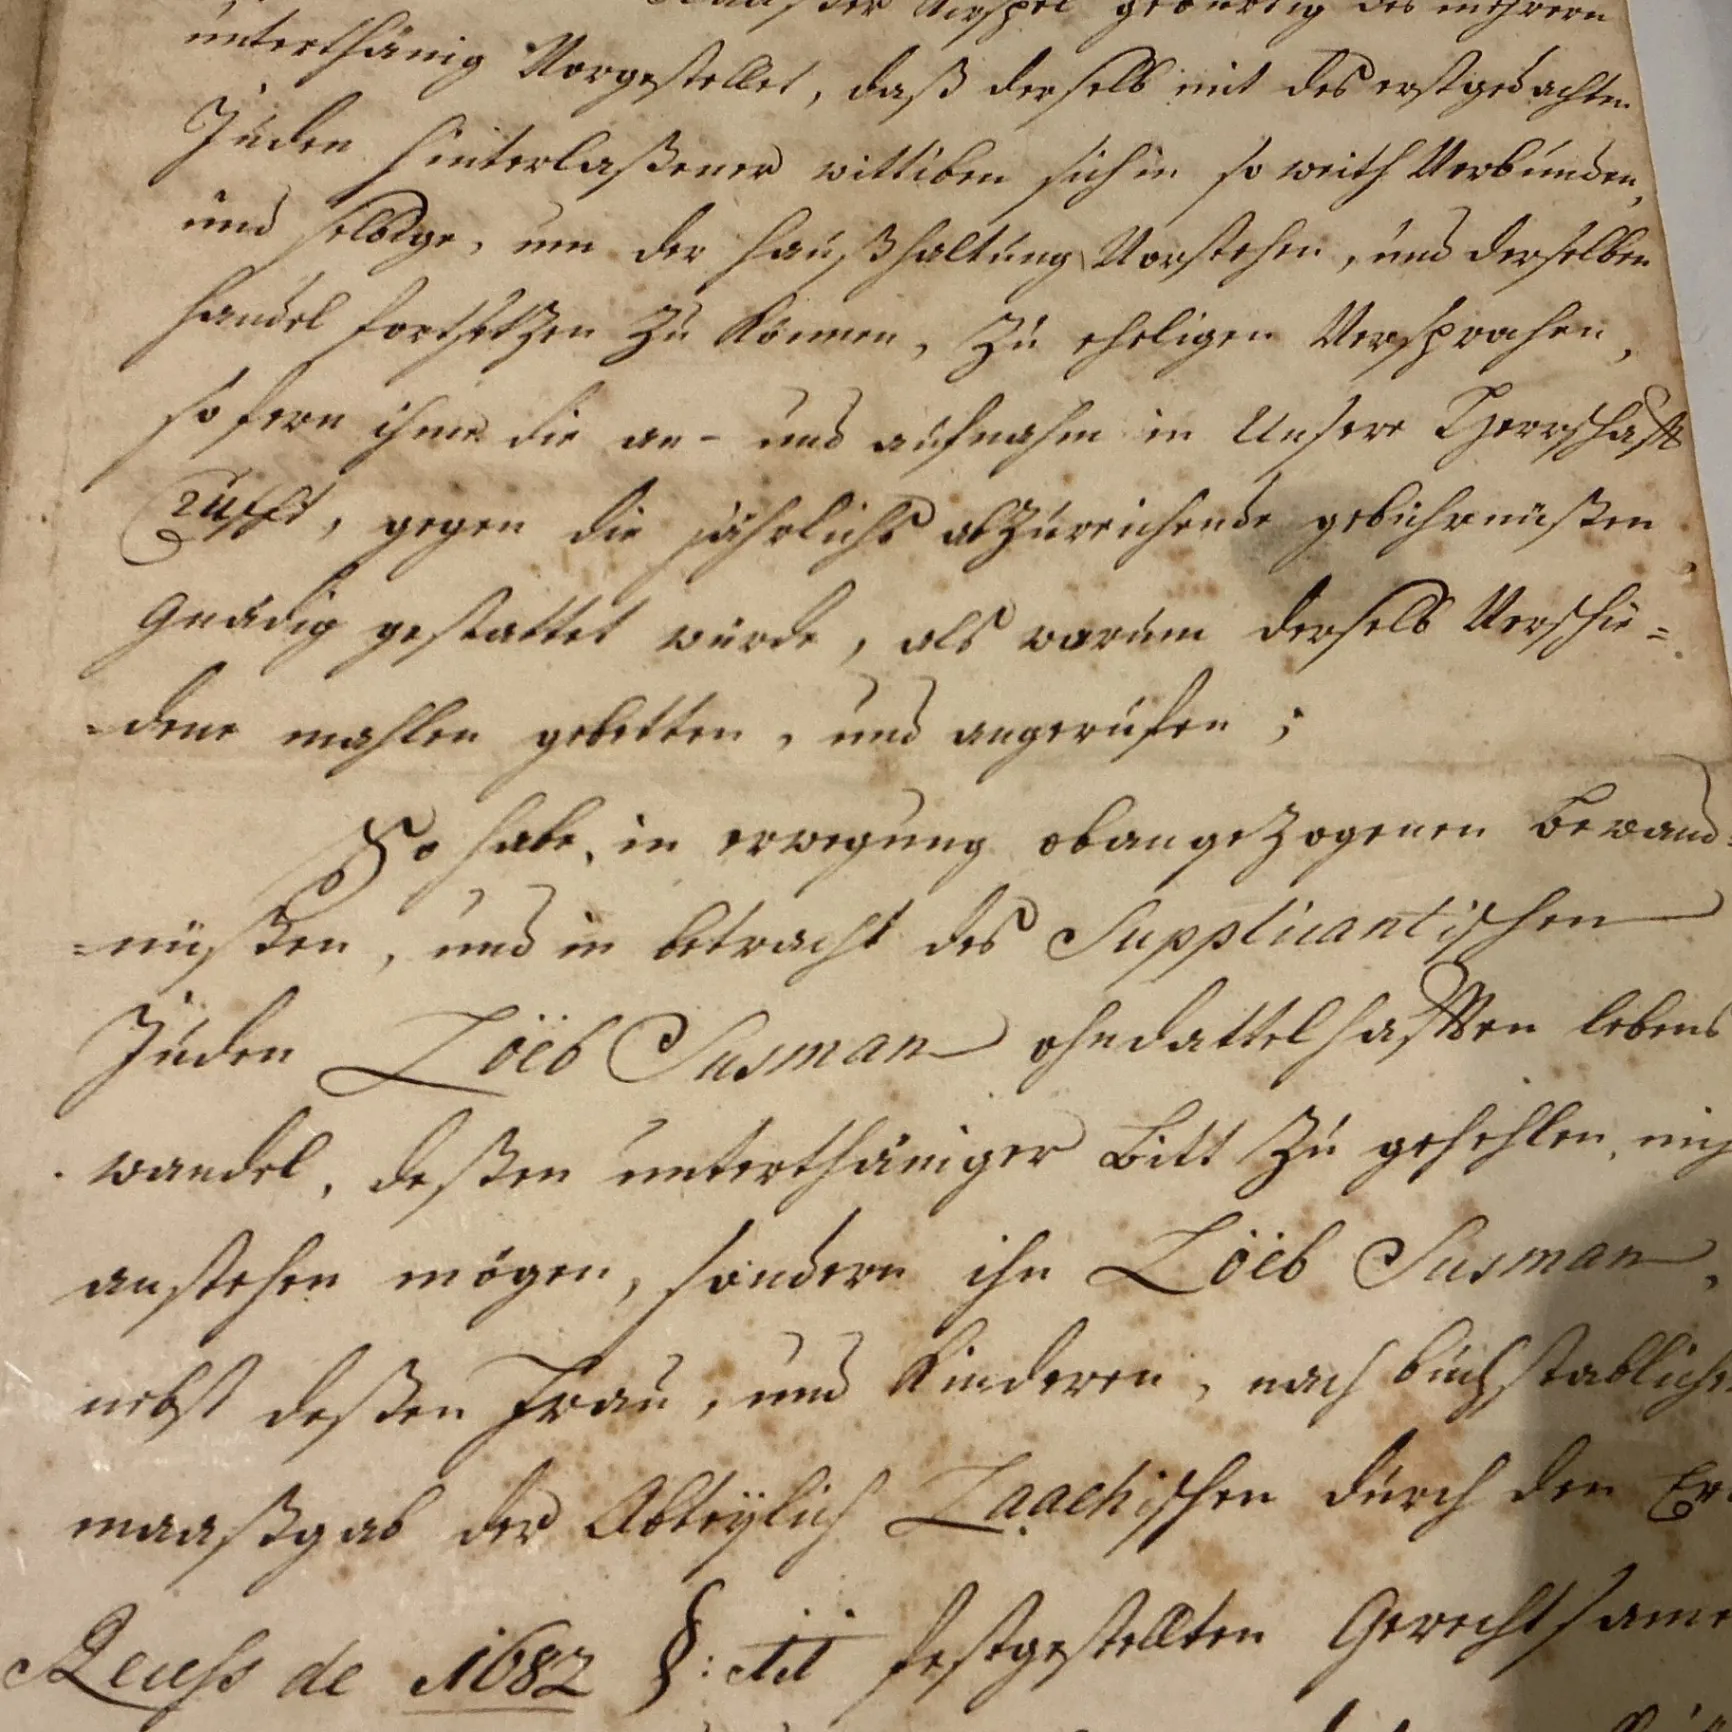 Kirspel gebürtig des mehrern
unterthänig Vorgestellet, daß derselb mit des erstgedachten
Juden hinterlaßener wittiben sich in so weith Verbunden,
und selbige, um der haußhaltung Vorstehen, und derselben
handel fortsetzen zu können, zu eheligen Versprochen,
so fern ihme die an- und aufnahm in Unsere Herrschafft
Crufft, gegen die jährlichs abzureichende gebührnüßen
Gnädig gestattet würde, als warum derselb Verschie=
=dene mahlen gebetten, und angerufen;
So habe, in erwegung obangezogenen bewand=
=nüßen, und in betracht des Supplicantischen
Juden Löeb Susman ohndattelhafften lebens
wandel, deßen unterthäniger Bitt zu gehehlen,
anstehen mögen, sondern ihn Löeb Susman,
nebst deßen Frau, und Kinderen, nach buchstabliche
maaßgab der Abteylich Laachischen durch den
Recess de 1682 §: 11 festgestellten Gerechtsame